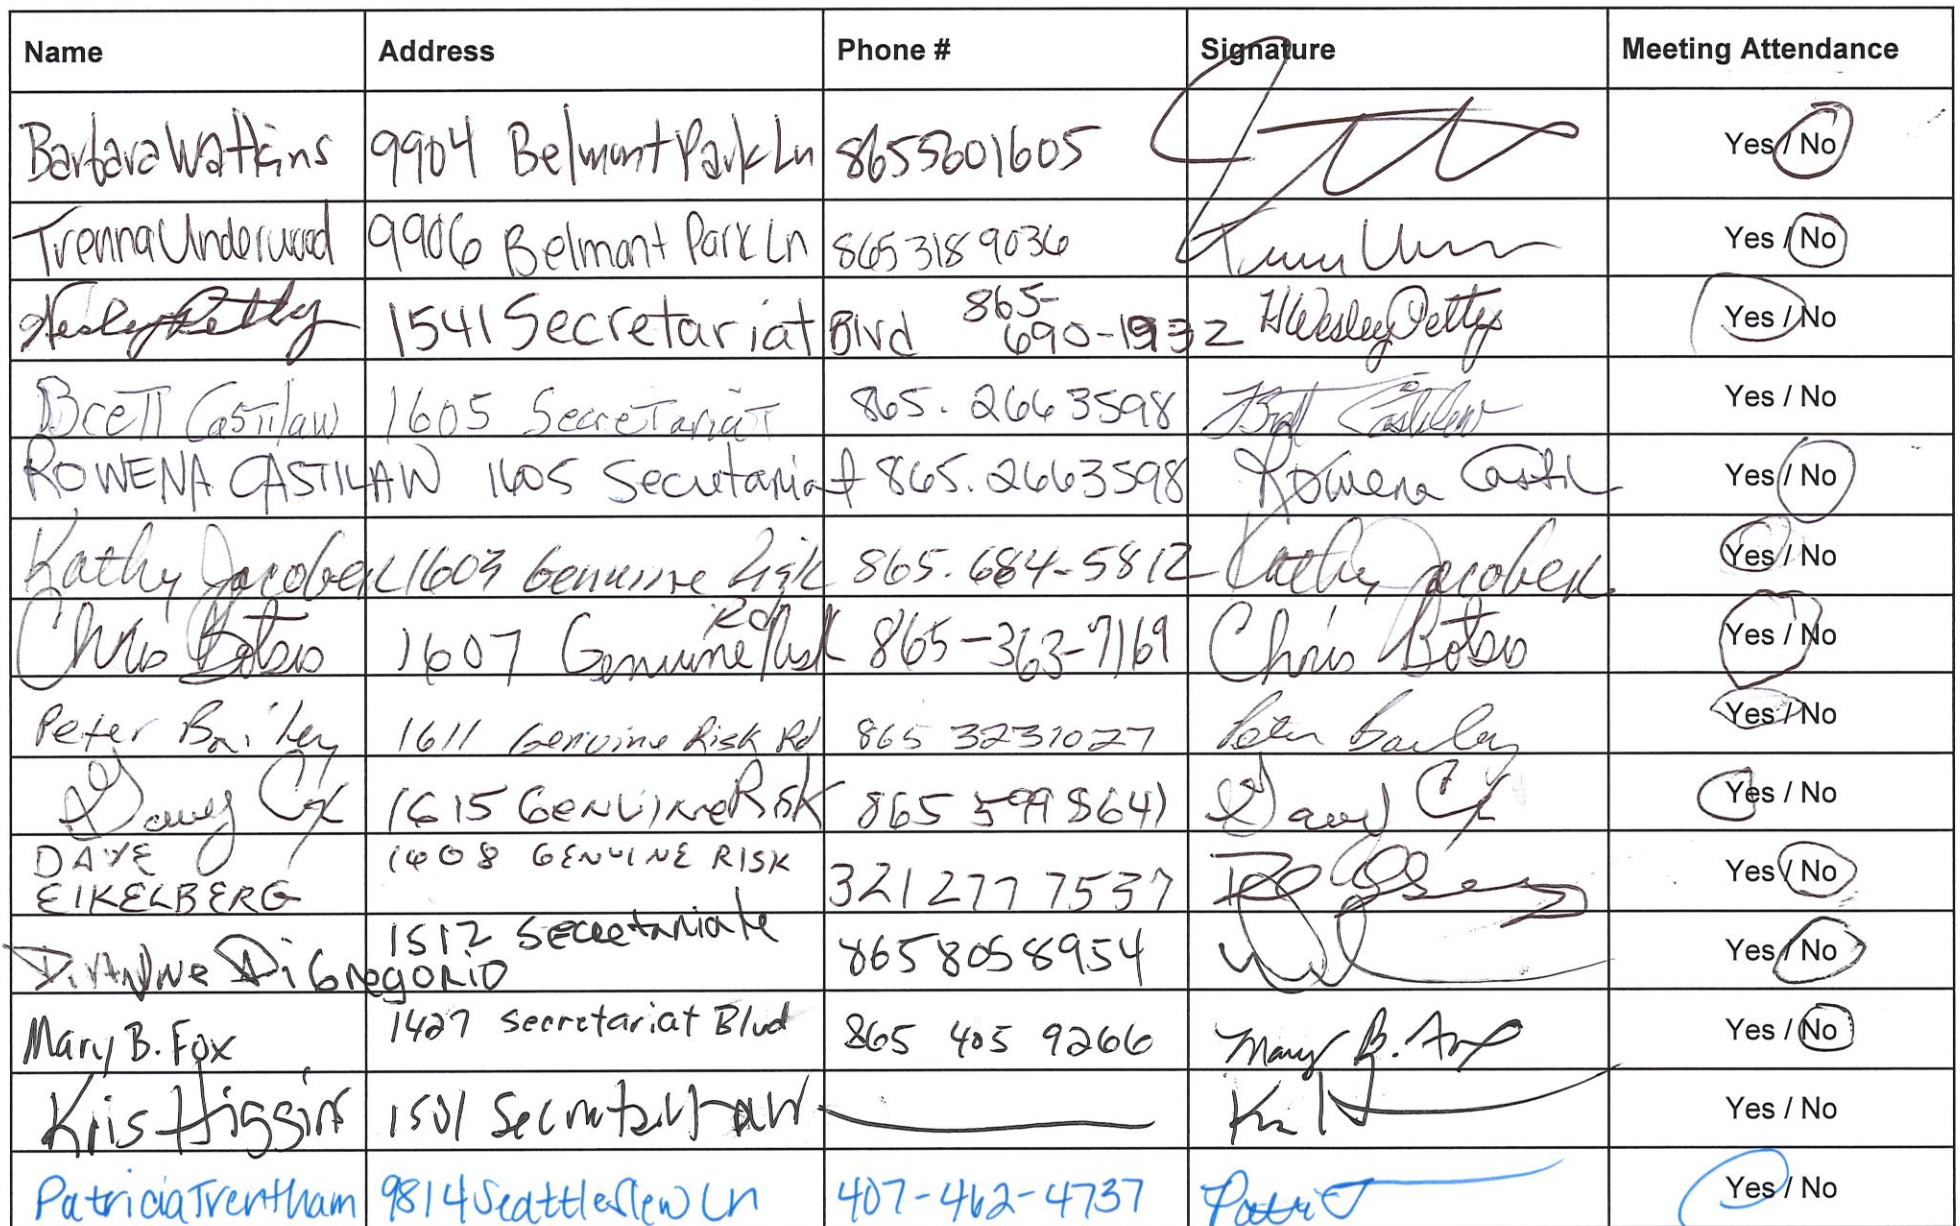 Name Address Phone # Signature Meeting Attendance
Barbara Watkins 9904 Belmont Park Ln 8655601605 Yes / No
Trenna Underwood 9906 Belmont Park Ln 865 318 9036 Yes / No
Wesley Petty 1541 Secretariat Blvd 865-690-1932 H Wesley Petty Yes / No
Brett Castilaw 1605 Secretariat 865. 266 3598 Brett Castilaw Yes / No
ROWENA CASTILAW 1605 Secretariat 865. 266 3598 Rowena Castil Yes / No
Kathy Jacobek 1603 Genuine Risk 865. 684-5812 Kathy Jacobek Yes / No
Chris Botsio 1607 Genuine Risk Rd 865-363-7169 Chris Botsio Yes / No
Peter Bailey 1611 Genuine Risk Rd 865 3231027 Peter Bailey Yes / No
Cox 1615 Genuine Risk 865 599 8641 Cox Yes / No
DAVE EIKELBERG 1608 GENUINE RISK 321 277 7537 Yes / No
DiANNe DiGregoRiO 1512 Secretariate 865 805 8954 Yes / No
Mary B. Fox 1427 Secretariat Blvd 865 405 9266 Mary B. Fox Yes / No
Kris Higgins 1501 Yes / No
Patricia Trentham 9814 Seattle Slew Ln 407-462-4737 Patri T Yes / No